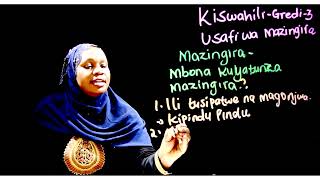 Kiswahili-Gredi-3
Usafi wa Mazingira
Mazingira-
Mbona kuyatunza
mazingira?
1. Ili tusipatwe na magonjwa.
Kipindu pindu
2.